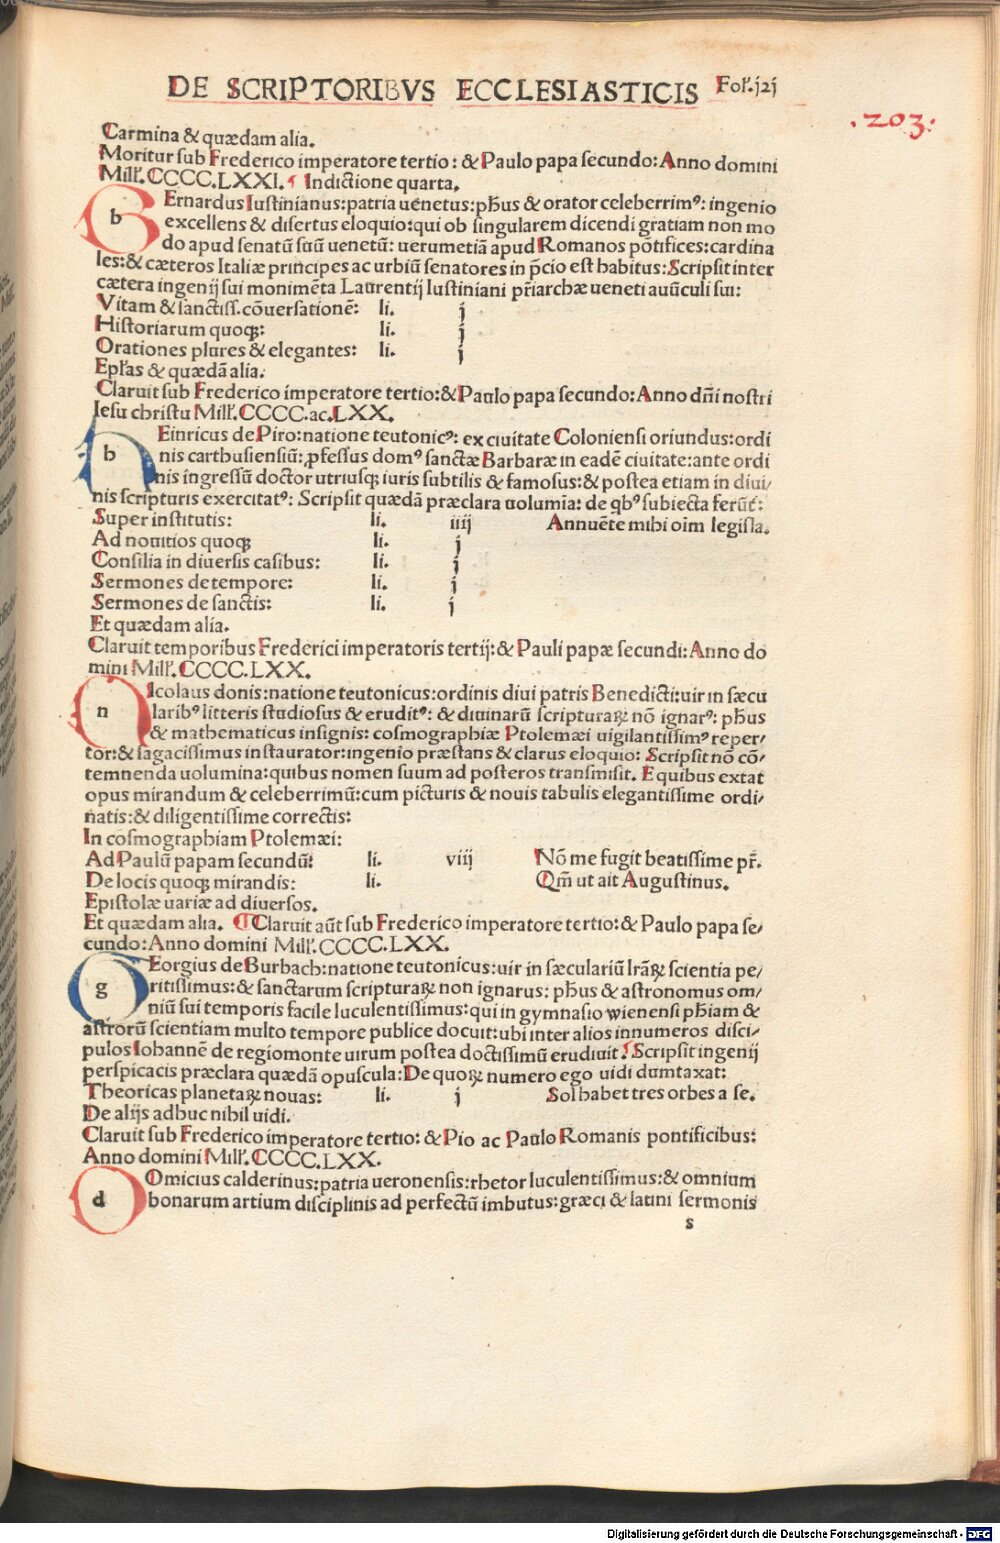 DE SCRIPTORIBVS ECCLESIASTICIS Fol. j2j
.203.
Carmina & quædam alia.
Moritur sub Frederico imperatore tertio: & Paulo papa secundo: Anno domini
Mill'. CCCC.LXXI. ¶ Indictione quarta.
bErnardus Iustinianus: patria uenetus: pħus & orator celeberrimꝰ: ingenio
excellens & disertus eloquio: qui ob singularem dicendi gratiam non mo
do apud senatū suū uenetū: uerumetiā apud Romanos pōtifices: cardina
les: & cæteros Italiæ principes ac urbiū senatores in p̄cio est habitus: Scripsit inter
cætera ingenij sui monimēta Laurentij Iustiniani pr̄iarchæ ueneti auūculi sui:
Vitam & sanctiss. cōuersationē: li. j
Historiarum quoqꝫ: li. j
Orationes plures & elegantes: li. j
Ep̄las & quædā alia.
Claruit sub Frederico imperatore tertio: & Paulo papa secundo: Anno dn̄i nostri
Iesu christu Mill'. CCCC. ac. LXX.
hEinricus de Piro: natione teutonicꝰ: ex ciuitate Coloniensi oriundus: ordi
nis carthusiensiū: ꝓfessus domꝰ sanctæ Barbaræ in eadē ciuitate: ante ordi
nis ingressū doctor utriusqꝫ iuris subtilis & famosus: & postea etiam in diui/
nis scripturis exercitatꝰ: Scripsit quædā præclara uolumīa: de qbꝰ subiecta ferūt̄:
Super institutis: li. iiij Annuēte mihi oīm legisla.
Ad nouitios quoqꝫ li. j
Consilia in diuersis casibus: li. j
Sermones de tempore: li. j
Sermones de sanctis: li. j
Et quædam alia.
Claruit temporibus Frederici imperatoris tertij: & Pauli papæ secundi: Anno do
mini Mill'. CCCC.LXX.
nIcolaus donis: natione teutonicus: ordinis diui patris Benedicti: uir in sæcu
laribꝰ litteris studiosus & eruditꝰ: & diuinarū scripturaꝝ nō ignarꝰ: pħus
& mathematicus insignis: cosmographiæ Ptolemæi uigilantissimꝰ reper/
tor: & sagacissimus instaurator: ingenio præstans & clarus eloquio: Scripsit nō cō/
temnenda uolumina: quibus nomen suum ad posteros transmisit. E quibus extat
opus mirandum & celeberrimū: cum picturis & nouis tabulis elegantissime ordi/
natis: & diligentissime correctis:
In cosmographiam Ptolemæi:
Ad Paulū papam secundū: li. viij Nō me fugit beatissime pr̄.
De locis quoqꝫ mirandis: li. Qm̄ ut ait Augustinus.
Epistolæ uariæ ad diuersos.
Et quædam alia. ¶ Claruit aūt sub Frederico imperatore tertio: & Paulo papa se/
cundo: Anno domini Mill'. CCCC.LXX.
gEorgius de Burbach: natione teutonicus: uir in sæculariū lr̄aꝝ scientia pe/
ritissimus: & sanctarum scripturaꝝ non ignarus: pħus & astronomus om/
niū sui temporis facile luculentissimus: qui in gymnasio wienensi pħiam &
astrorū scientiam multo tempore publice docuit: ubi inter alios innumeros disci/
pulos Iohannē de regiomonte uirum postea doctissimū erudiuit. ¶ Scripsit ingenij
perspicacis præclara quædā opuscula: De quoꝝ numero ego uidi dumtaxat:
Theoricas planetaꝝ nouas: li. j Sol habet tres orbes a se.
De alijs adhuc nihil uidi.
Claruit sub Frederico imperatore tertio: & Pio ac Paulo Romanis pontificibus:
Anno domini Mill'. CCCC.LXX.
dOmicius calderinus: patria ueronensis: rhetor luculentissimus: & omnium
bonarum artium disciplinis ad perfectū imbutus: græci & latini sermonis
s
Digitalisierung gefördert durch die Deutsche Forschungsgemeinschaft - DFG